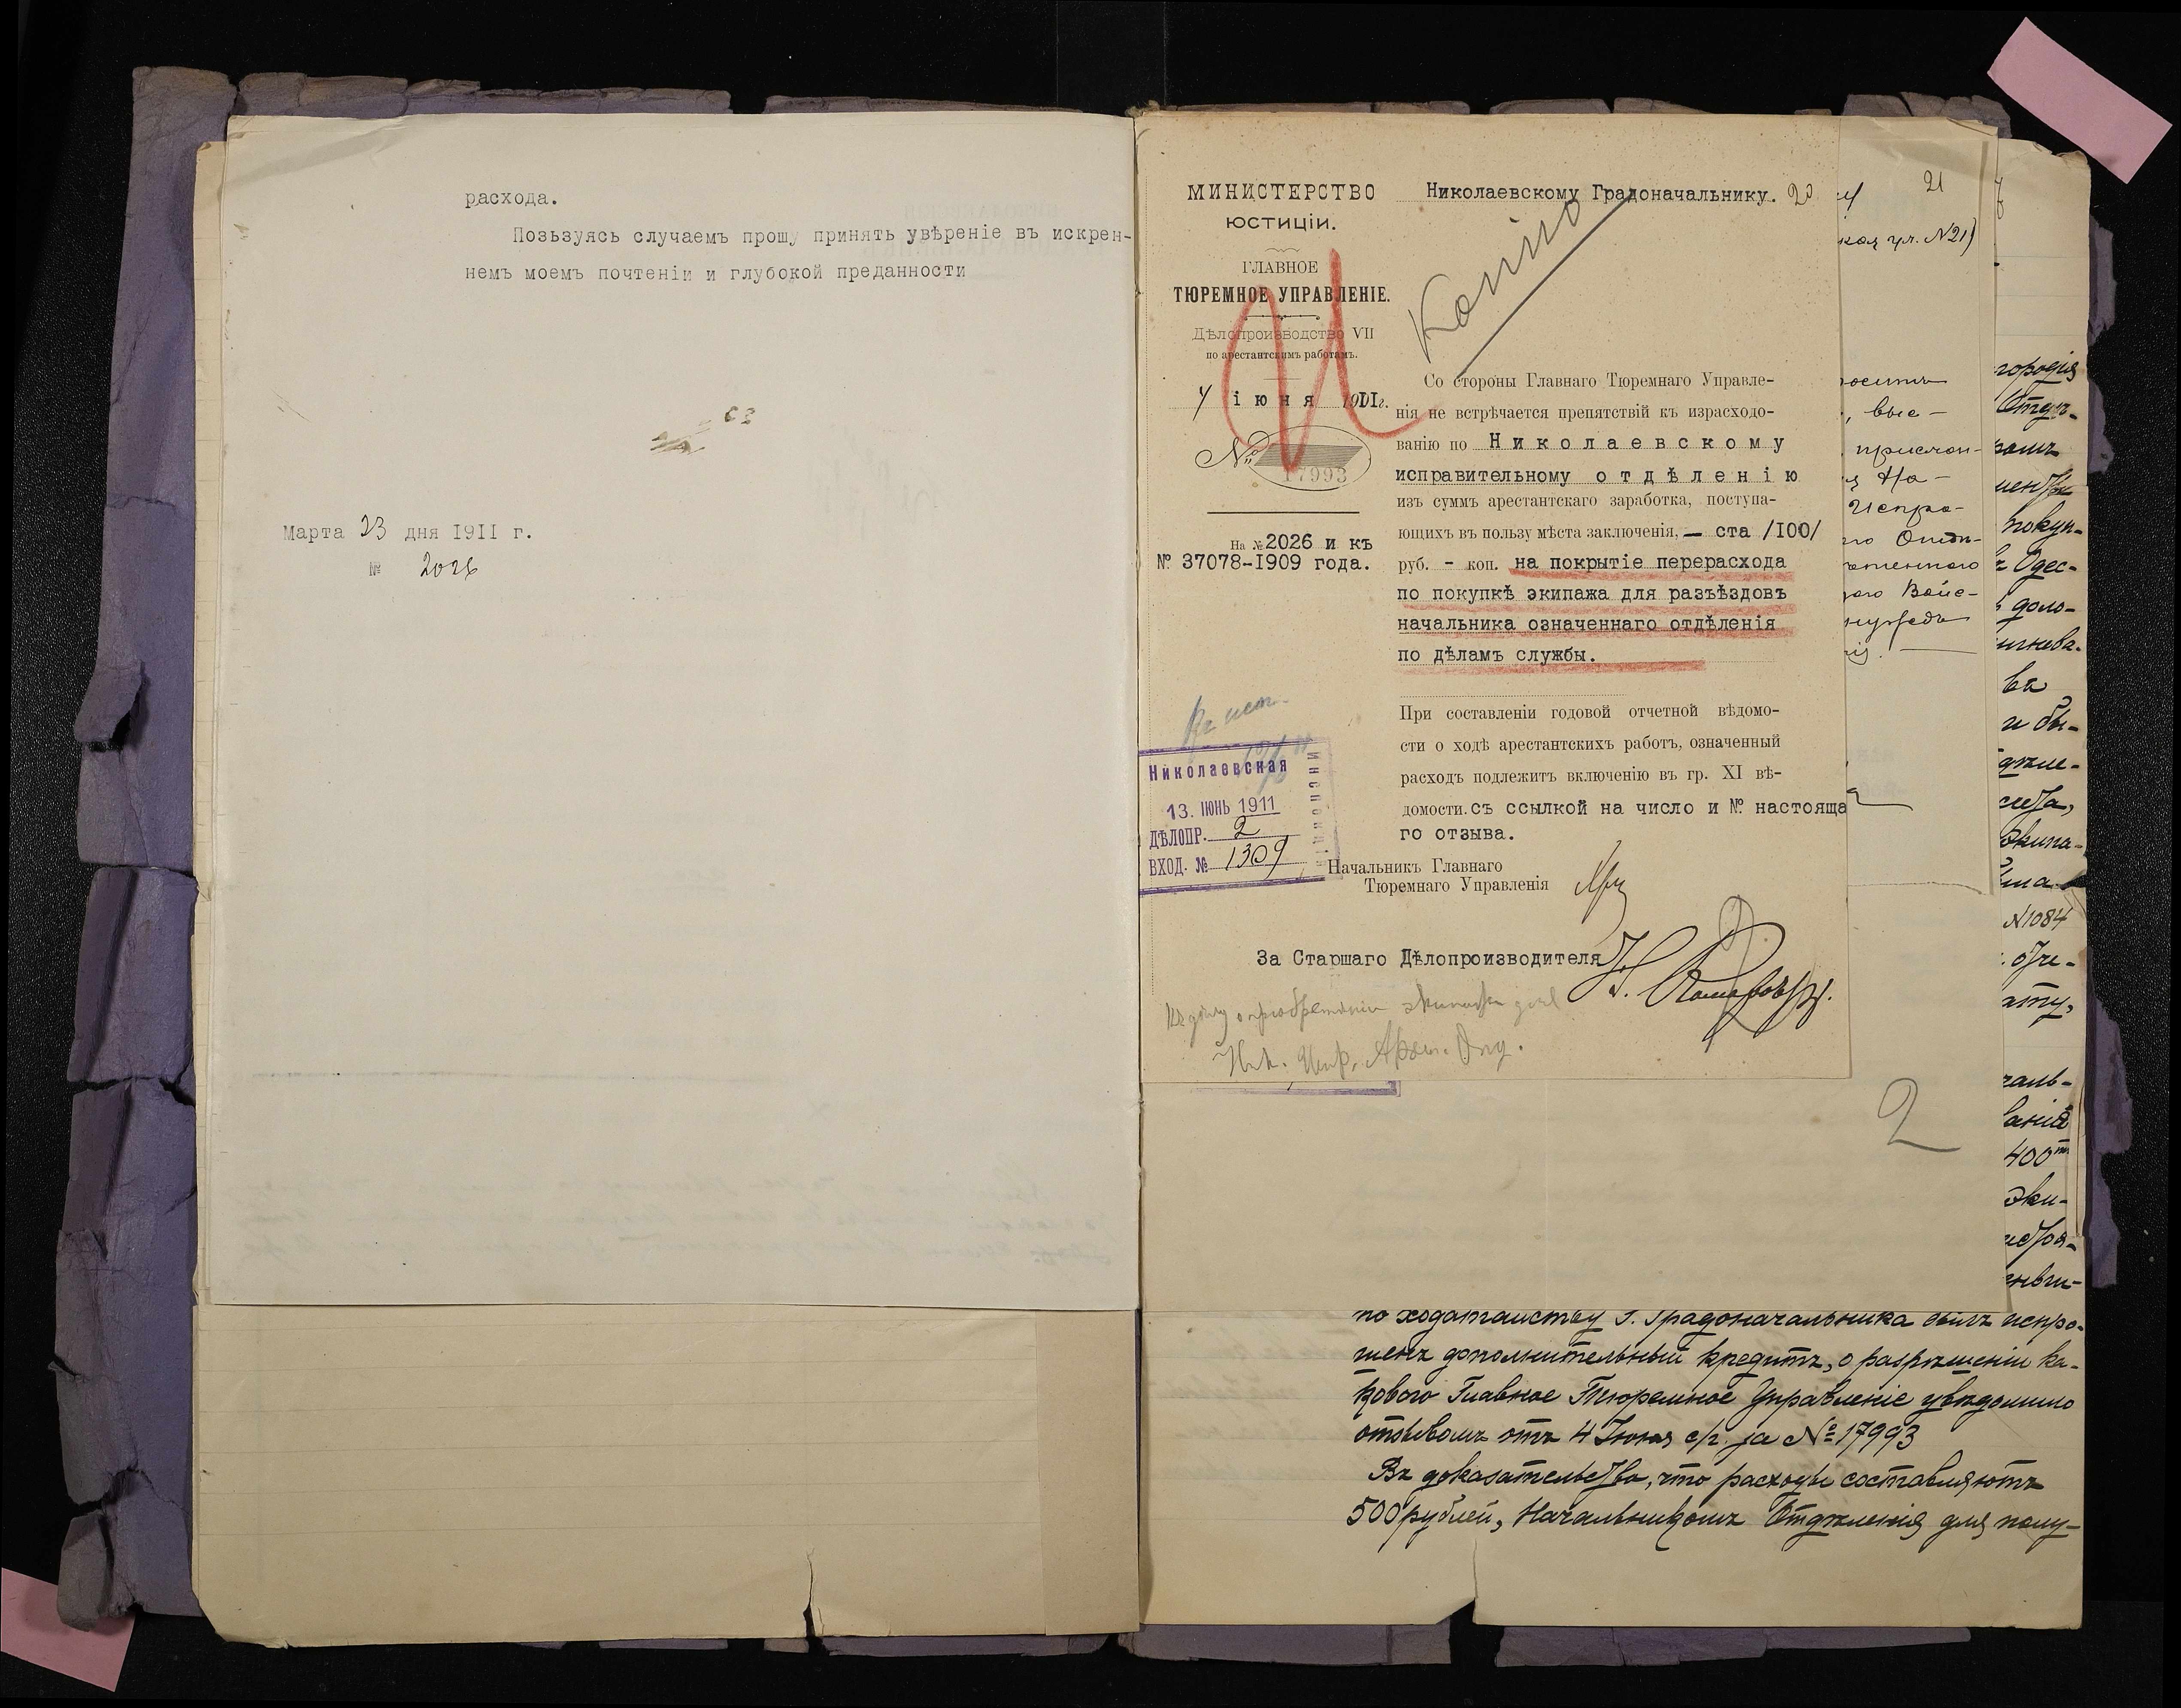 расхода.
Позьзуясь случаемъ прошу принять увѣреніе въ искрен-
немъ моемъ почтеніи и глубокой преданности
Марта 23 дня 1911 г.
№ 2026
МИНИСТЕРСТВО
ЮСТИЦІИ.
ГЛАВНОЕ
ТЮРЕМНОЕ УПРАВЛЕНІЕ.
Дѣлопроизводство VII
по арестантскимъ работамъ.
4 іюня 1911 г.
№ 17993
На № 2026 и къ
№ 37078-1909 года.
Николаевскому Градоначальнику. 20
Копию
Со стороны Главнаго Тюремнаго Управле-
нія не встрѣчается препятствій къ израсходо-
ванію по Николаевскому
исправительному отдѣленію
изъ суммъ арестантскаго заработка, поступа-
ющихъ въ пользу мѣста заключенія, — ста /100/
руб. - коп. на покрытіе перерасхода
по покупкѣ экипажа для разъѣздовъ
начальника означеннаго отдѣленія
по дѣламъ службы.
При составленіи годовой отчетной вѣдомо-
сти о ходѣ арестантскихъ работъ, означенный
расходъ подлежитъ включенію въ гр. XI вѣ-
домости. съ ссылкой на число и № настояща
го отзыва.
Николаевская
Инспекція
13. ІЮНЬ 1911
ДѢЛОПР. 2
ВХОД. № 1309
Начальникъ Главнаго
Тюремнаго Управленія
За Старшаго Дѣлопроизводителя
Къ дѣлу о пріобретеніи экипажа для
Ник. Испр. Арест. Отд.
21
кая ул. №21)
, вые-
На-
Испра-
городія
Отдѣ-
покуп-
Одес-
въ
и бы-
экипа-
№1084
2
400
эки-
по ходатайству Г. Градоначальника былъ испро-
шенъ дополнительный кредитъ, о разрѣшеніи ка-
кового Главное Тюремное Управленіе увѣдомило
отзывомъ отъ 4 Іюня с/г. за №17993
Въ доказательство, что расходы составляютъ
500 рублей, Начальникомъ Отдѣленія для полу-